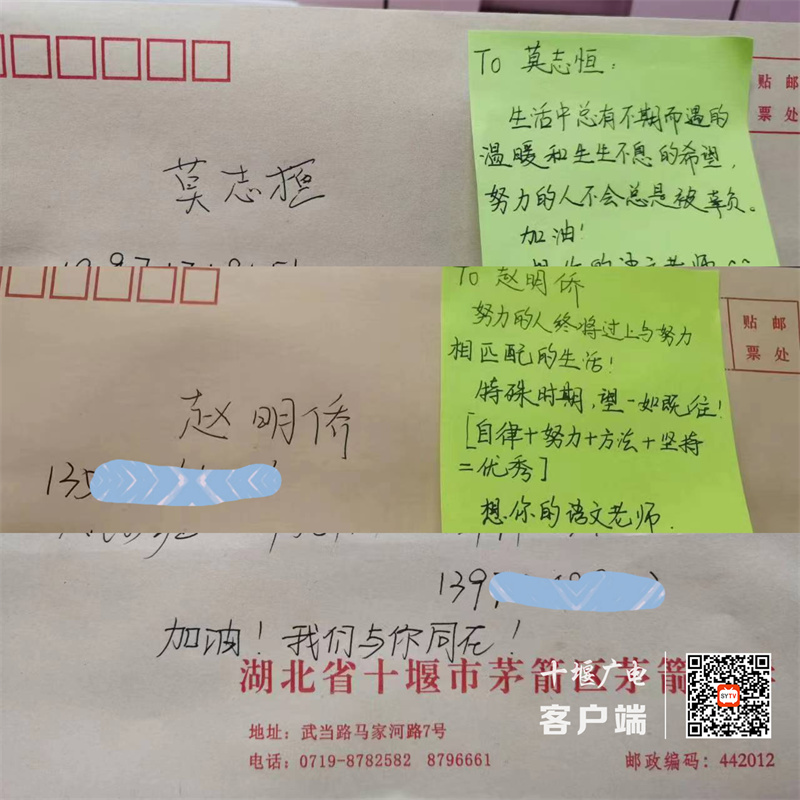 To 莫志恒:
贴 邮
票 处
生活中总有不期而遇的
温暖和生生不息的希望,
努力的人不会总是被辜负。
加油!
莫志恒
To 赵明侨
努力的人终将过上与努力
相匹配的生活!
特殊时期,望一如既往!
[自律+努力+方法+坚持
=优秀]
想你的语文老师.
贴 邮
票 处
赵明侨
135
139
加油!我们与你同在!
湖北省十堰市茅箭区茅箭
十堰广电
客户端
SYTV
地址:武当路马家河路7号
电话:0719-8782582 8796661
邮政编码:442012